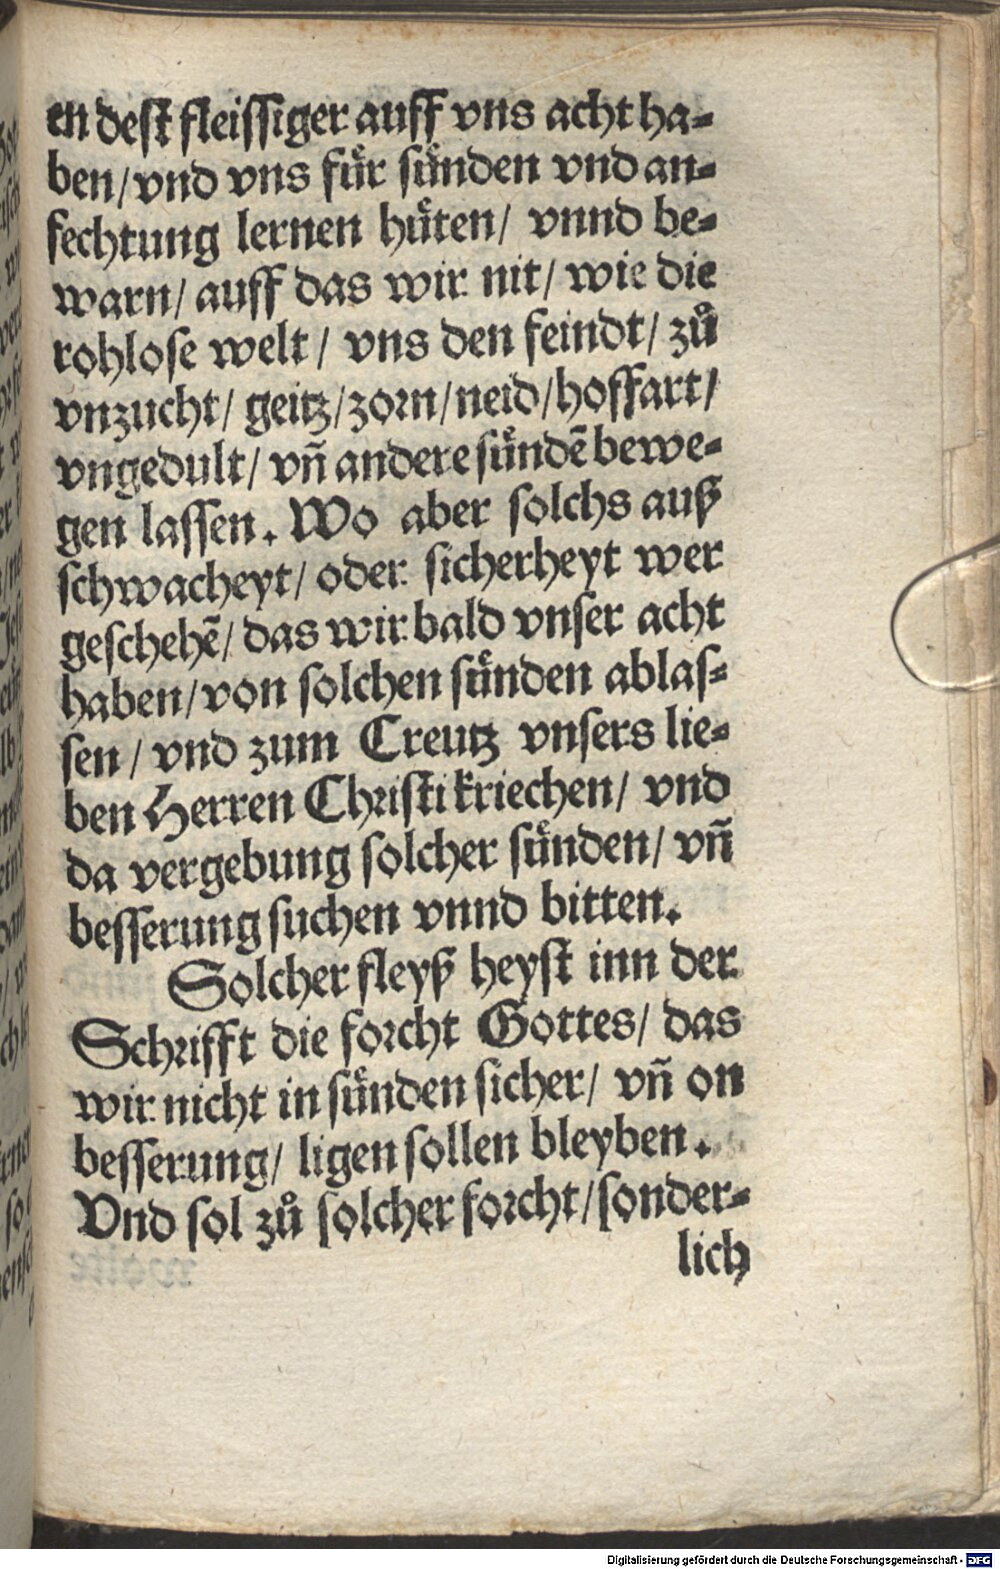 en dest fleissiger auff vns acht ha⸗
ben/ vnd vns fuͤr suͤnden vnd an⸗
fechtung lernen huͤten/ vnnd be⸗
warn/ auff das wir nit/ wie die
rohlose welt/ vns den feindt/ zuͦ
vnzucht/ geitz/ zorn/ neid/ hoffart/
vngedult/ vñ andere suͤndẽ bewe⸗
gen lassen. Wo aber solchs auß
schwacheyt/ oder sicherheyt wer
geschehẽ/ das wir bald vnser acht
haben/ von solchen suͤnden ablas⸗
sen/ vnd zum Creutz vnsers lie⸗
ben Herren Christi kriechen/ vnd
da vergebung solcher suͤnden/ vñ
besserung suchen vnnd bitten.
Solcher fleyß heyst inn der
Schrifft die forcht Gottes/ das
wir nicht in suͤnden sicher/ vñ on
besserung/ ligen sollen bleyben.
Vnd sol zuͦ solcher forcht/ sonder⸗
lich
Digitalisierung gefördert durch die Deutsche Forschungsgemeinschaft - DFG